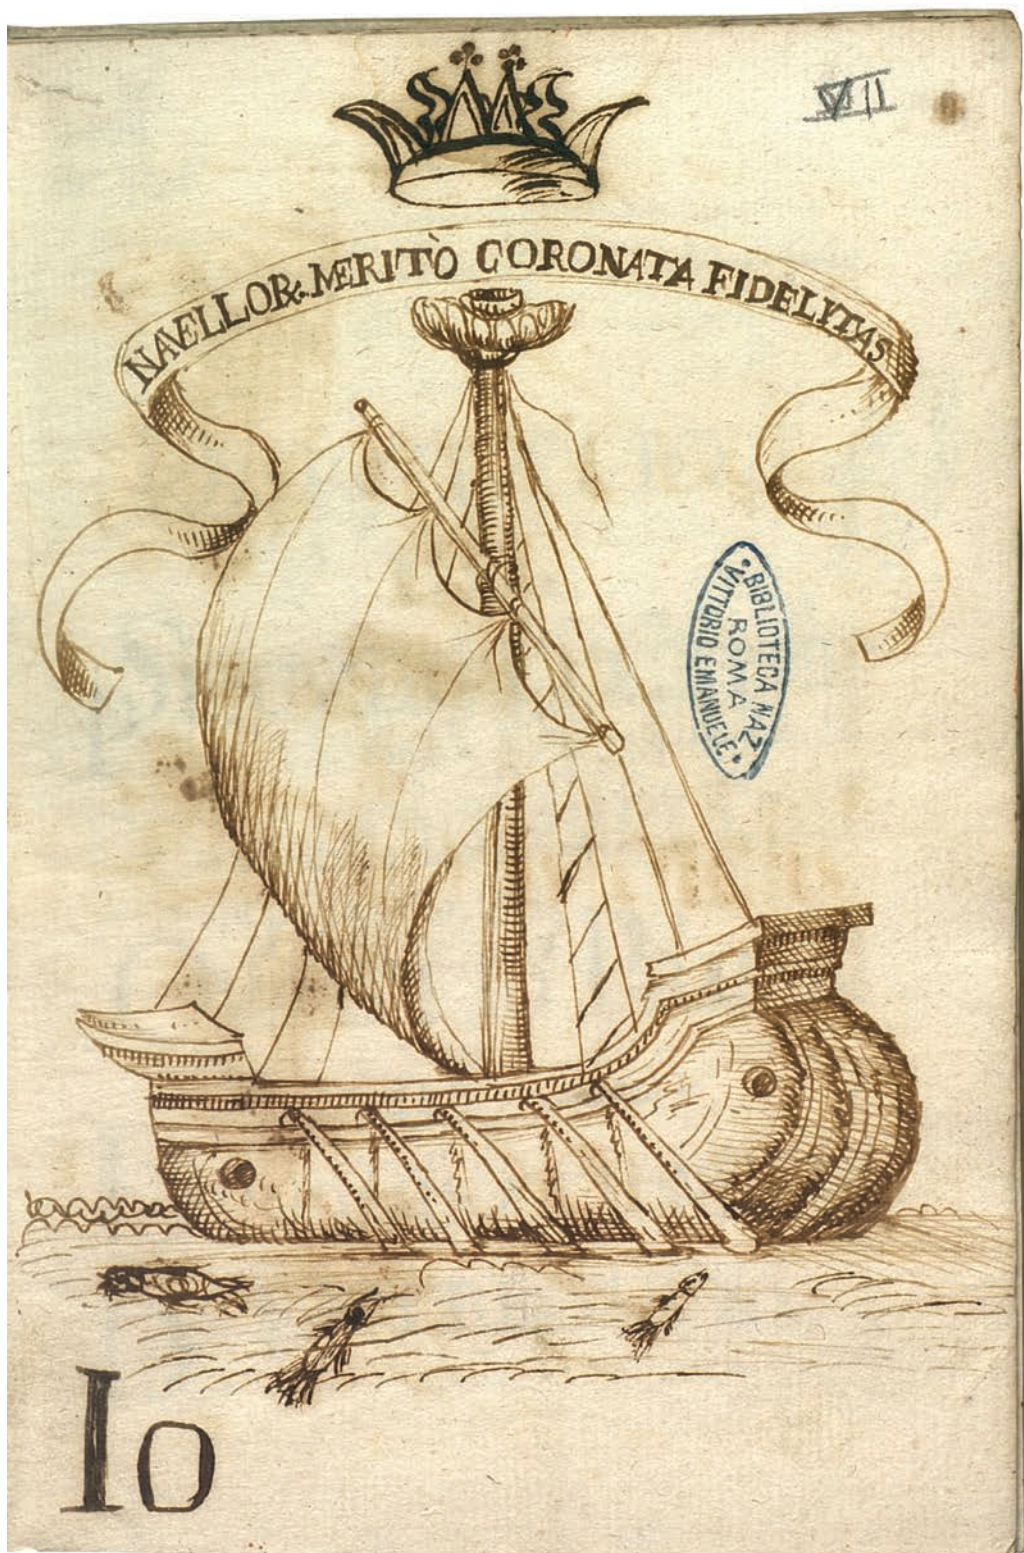 VII
NAVELLOR. MERITÒ CORONATA FIDELYTAS
BIBLIOTECA NAZ
ROMA
VITTORIO EMANUELE
Io